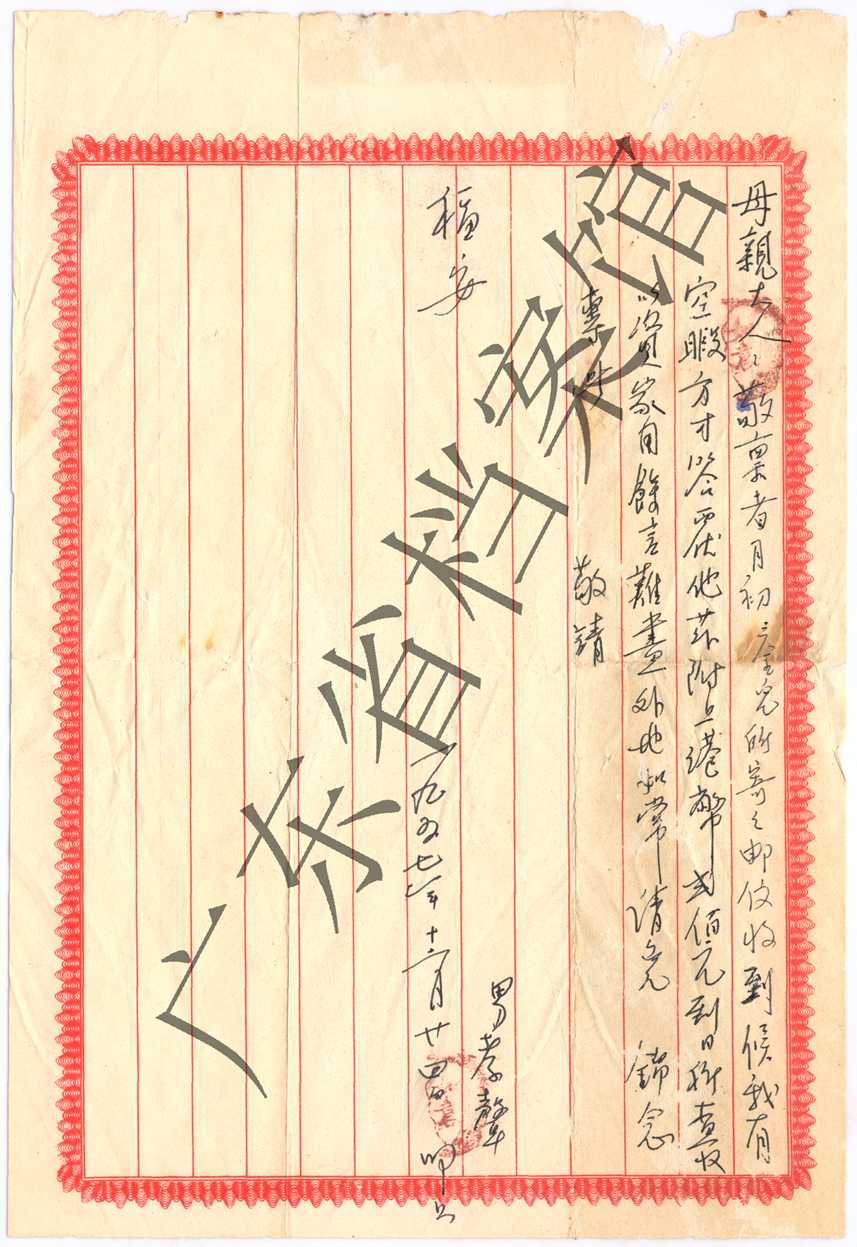 母親大人：敬稟者月初 兒所寄之郵 收到候我有
空暇方才答覆他 茲附上港幣弍佰元到日祈查收
以資家用餘言難盡外地如常請免 錦念
專此 敬請
福安
男孝聲
一九五七年十二月廿四日 叩上
广东省档案馆